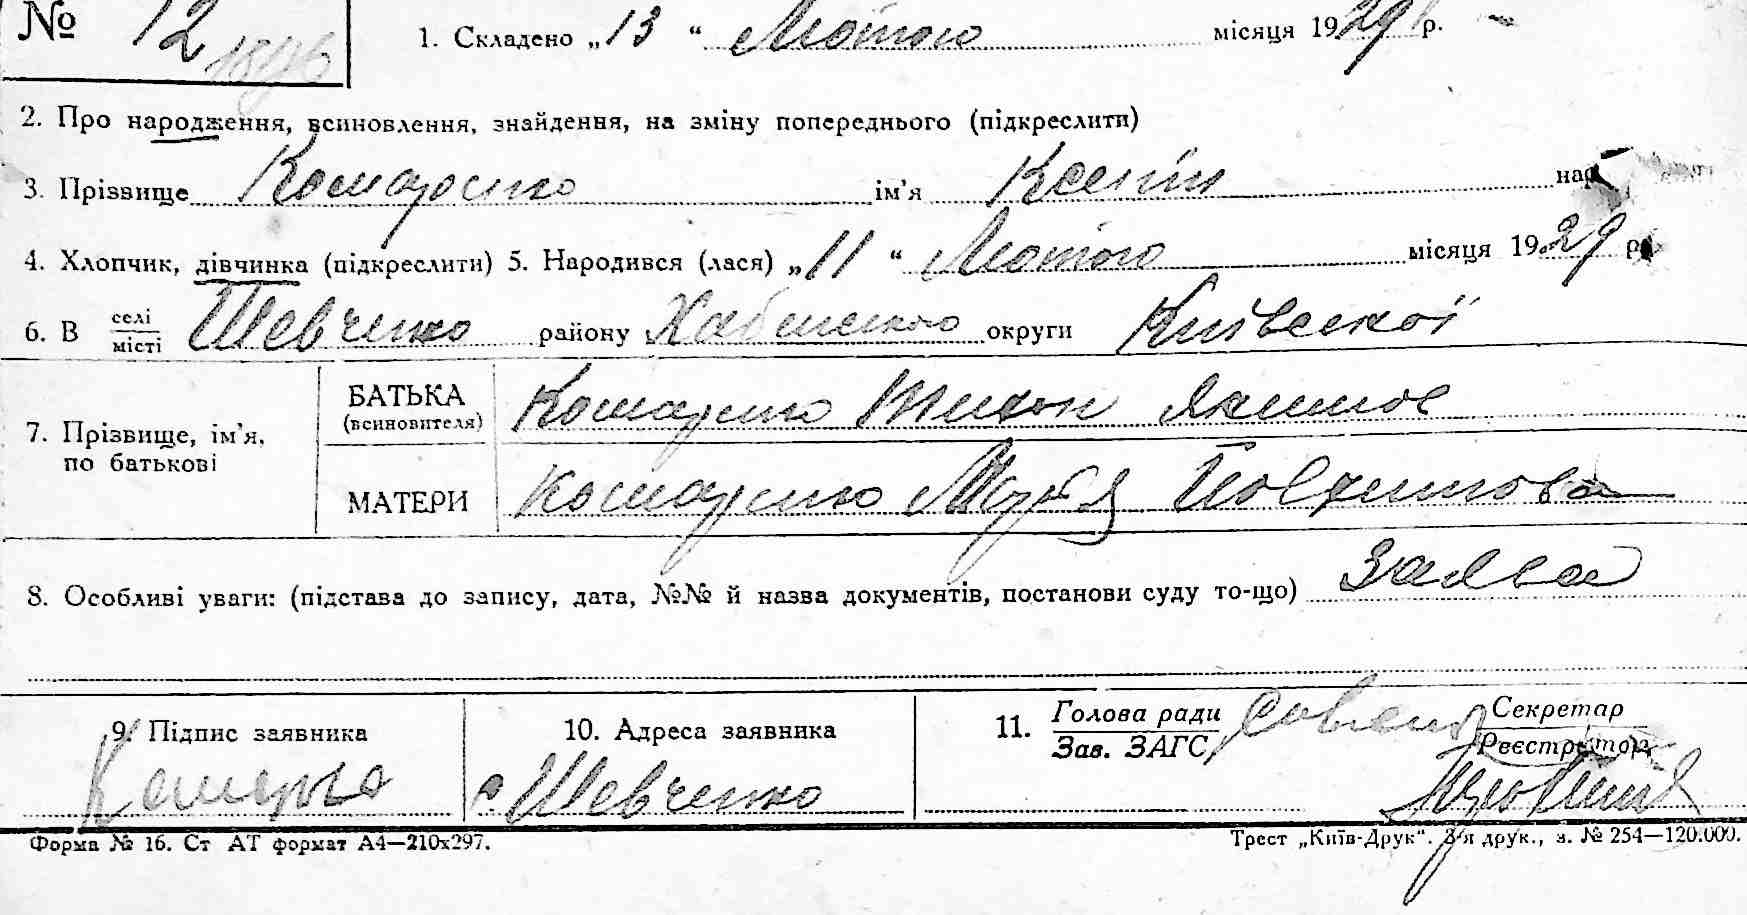 № 12
1. Складено „13“ Лютого місяця 1929 р.
2. Про народження, всиновлення, знайдення, на зміну попереднього (підкреслити)
3. Прізвище Комаренко ім’я Ксенія
4. Хлопчик, дівчинка (підкреслити) 5. Народився (лася) „11“ Лютого місяця 1929 р
6. В селі місті Шевченко району Хабенського округи Київської
7. Прізвище, ім’я, по батькові
БАТЬКА (всиновителя) Комаренко Тихон Якимов
МАТЕРИ Комаренко Явдокимова
8. Особливі уваги: (підстава до запису, дата, №№ й назва документів, постанови суду то-що) Заява
9. Підпис заявника
10. Адреса заявника
с Шевченко
11. Голова ради Зав. ЗАГС
Секретар Реєстратор
Форма № 16. Ст АТ формат А4—210х297.
Трест „Київ-Друк“. 3-я друк., з. № 254—120.000.